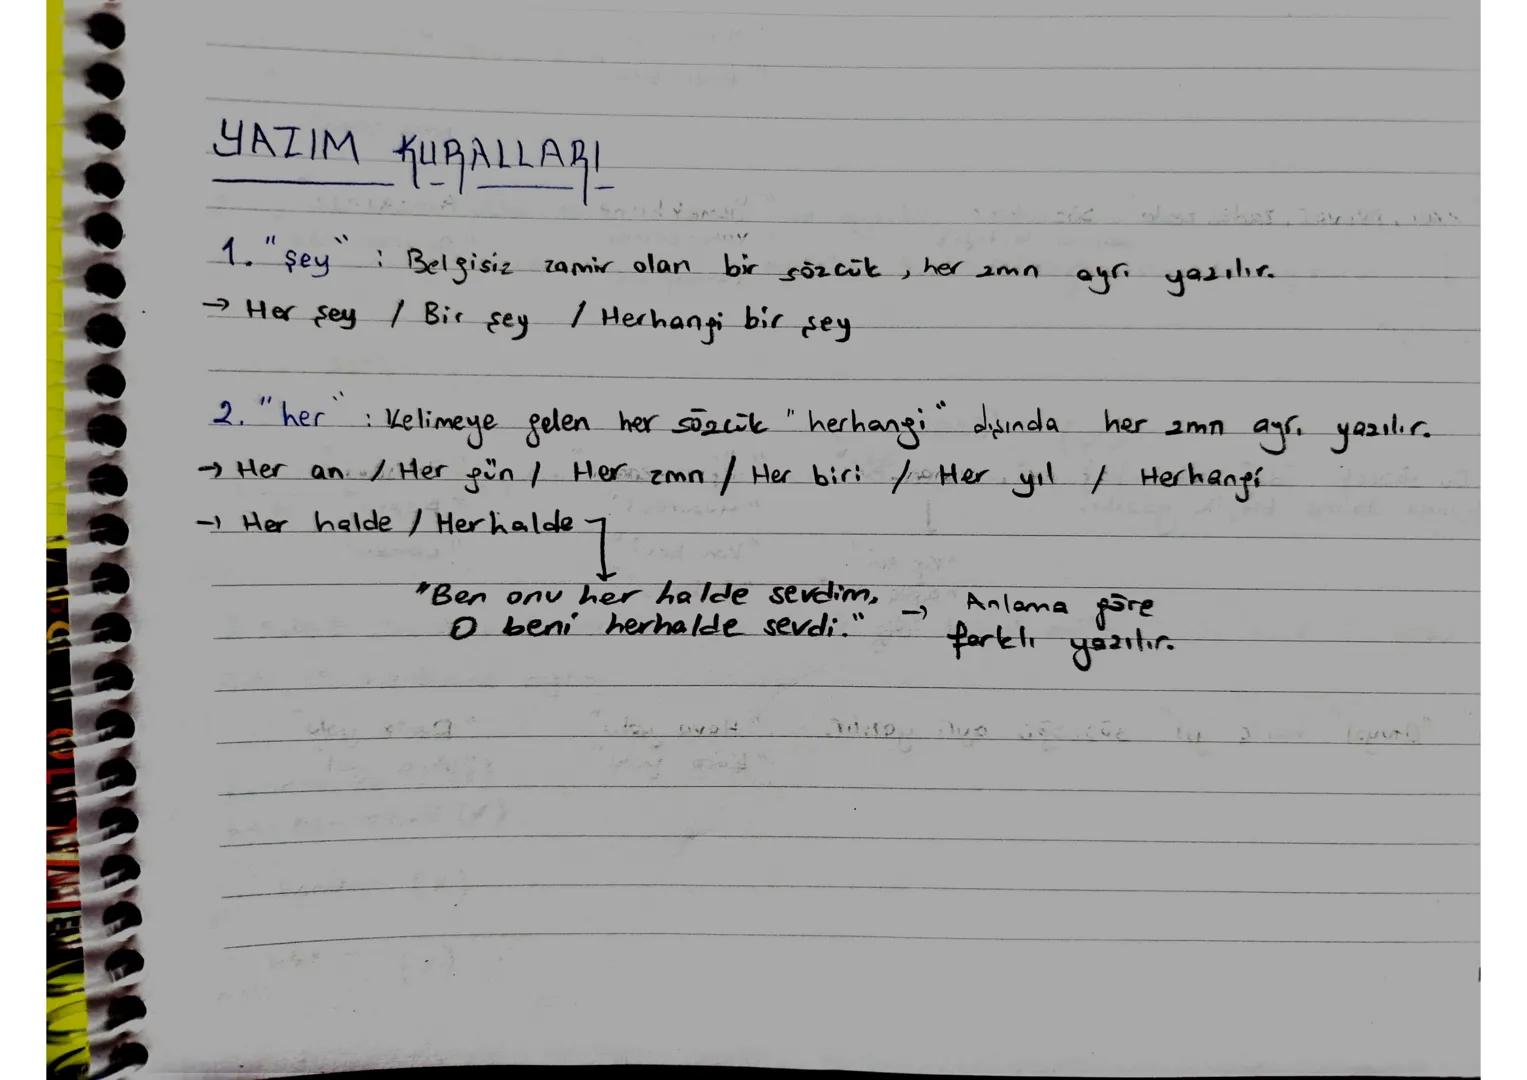 YAZIM KURALLARI
1. "şey" : Belgisiz zamir olan bir sözcük, her zmn ayrı yazılır.
→ Her şey / Bir şey / Herhangi bir şey
2. "her" : Kelimeye gelen her sözcük "herhangi" dışında her zmn ayrı yazılır.
→ Her an / Her gün / Her zmn / Her biri / Her yıl / Herhangi
→ Her halde / Herhalde
"Ben onu her halde sevdim, → Anlama göre
O beni herhalde sevdi." farklı yazılır.